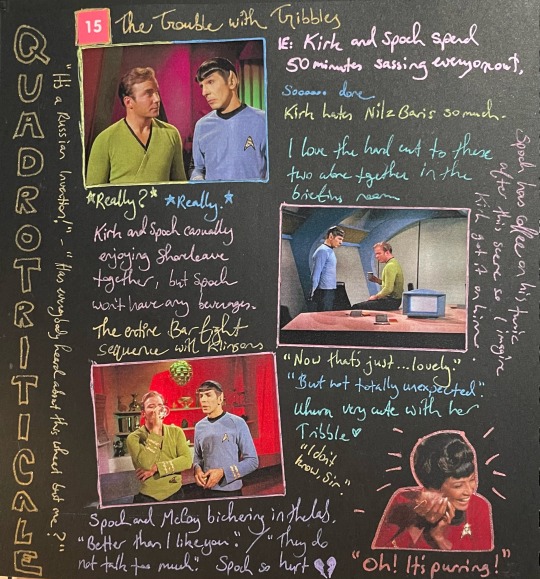 QUADROTRITICALE
15
The Trouble with Tribbles
IE: Kirk and Spock spend
50 minutes sassing everyone out.
Soooooo done
Kirk hates Nilz Baris so much.
I love the hard cut to these
two alone together in the
briefing room
"It's a Russian Invention!" - "Has everybody heard about this wheat but me?"
*Really?* *Really.*
Kirk and Spock casually
enjoying Shoreleave
together, but Spock
won't have any beverages.
The entire Bar fight
sequence with Klinsons
Spock has coffee on his tunic
after this scene so I imagine
Kirk got it on him
"Now that's just...lovely."
"But not totally unexpected".
Uhura very cute with her
Tribble
"I don't
know, Sir."
Spock and McCoy bickering in the lab.
"Better than I like you." / "They do
not talk too much". Spock so hurt
"Oh! It's purring!"